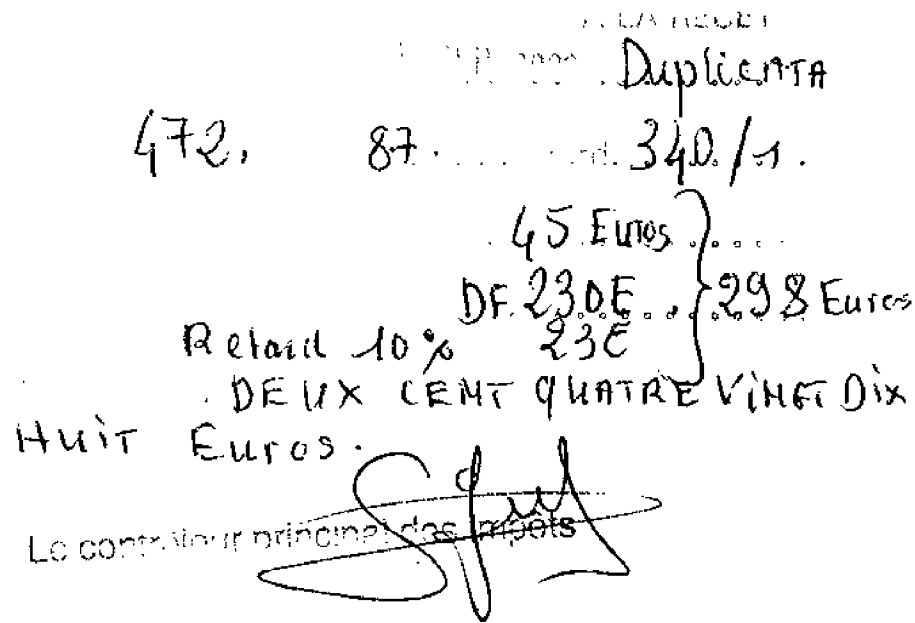 Duplicata
472. 87. 340./1.
45 Euros
DF. 230E 298 Euros
Retard 10% 23E
DEUX CENT QUATRE VINGT DIX
HUIT Euros.
Le contrôleur principal des Impôts